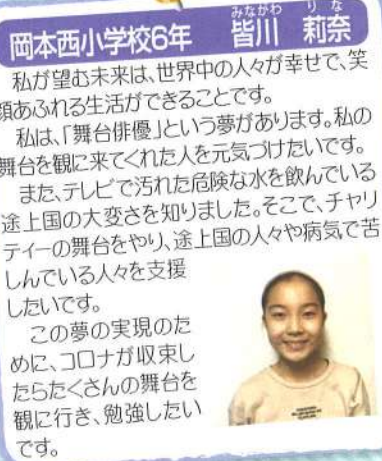 岡本西小学校6年 皆川 莉奈
みながわ りな
私が望む未来は、世界中の人々が幸せで、笑
顔あふれる生活ができることです。
私は、「舞台俳優」という夢があります。私の
舞台を観に来てくれた人を元気づけたいです。
また、テレビで汚れた危険な水を飲んでいる
途上国の大変さを知りました。そこで、チャリ
ティーの舞台をやり、途上国の人々や病気で苦
しんでいる人々を支援
したいです。
この夢の実現のた
めに、コロナが収束し
たらたくさんの舞台を
観に行き、勉強したい
です。